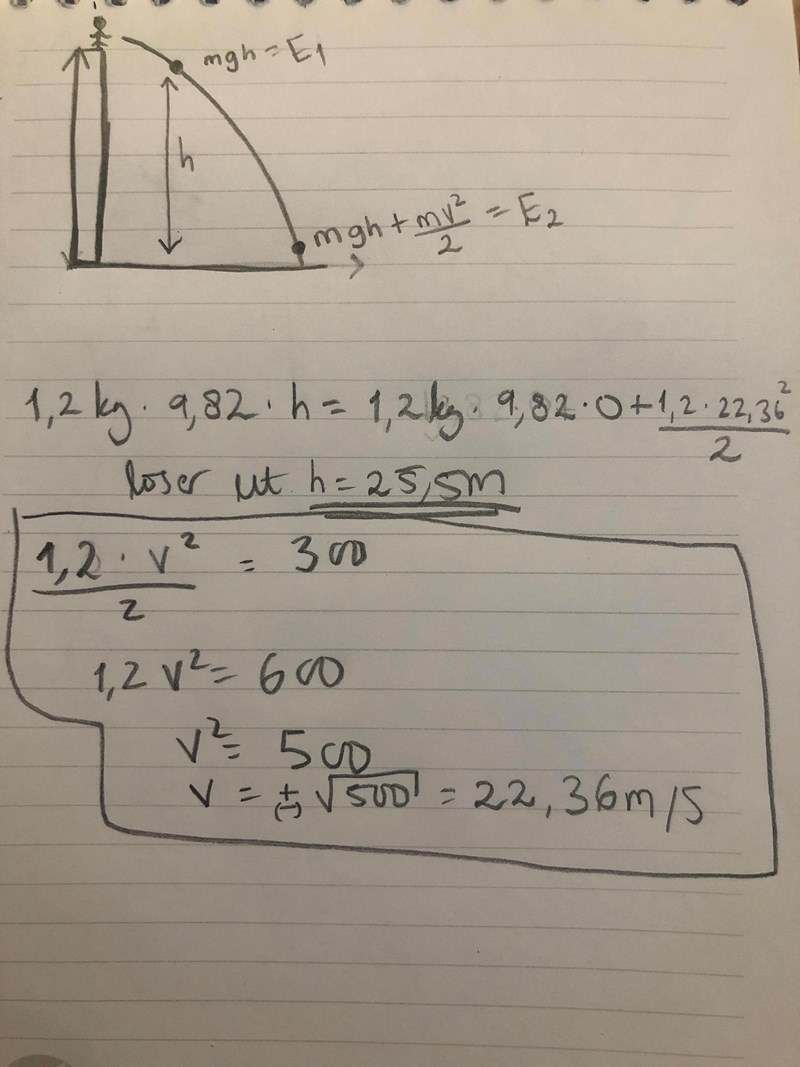 mgh = E₁
h
mgh + mv²/2 = E₂
1,2 kg · 9,82 · h = 1,2 kg · 9,82 · 0 + 1,2 · 22,36²/2
löser ut h = 25,5m
1,2 · v²/2 = 300
1,2 v² = 600
v² = 500
v = ±(-) √500 = 22,36 m/s